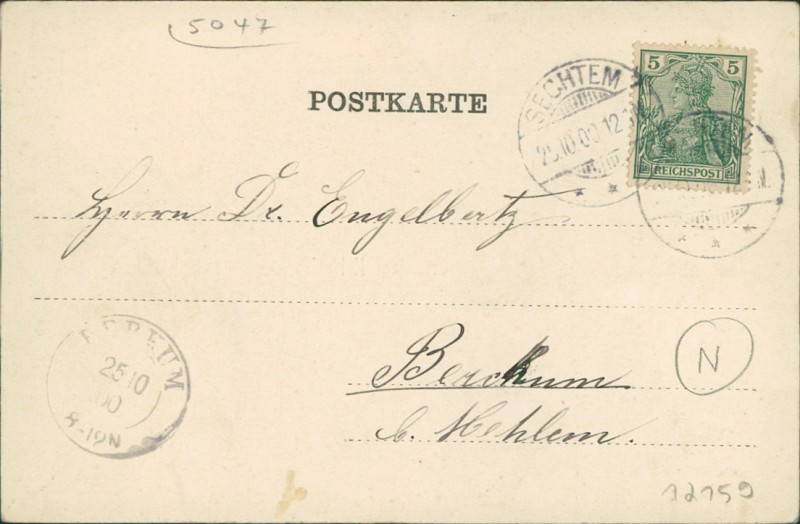 5047
POSTKARTE
SECHTEM
25.10.00.12
5 5
REICHSPOST
Herrn Dr. Engelbertz
25 10
00
8-12N
Berckum
N
b. Mehlem.
12159